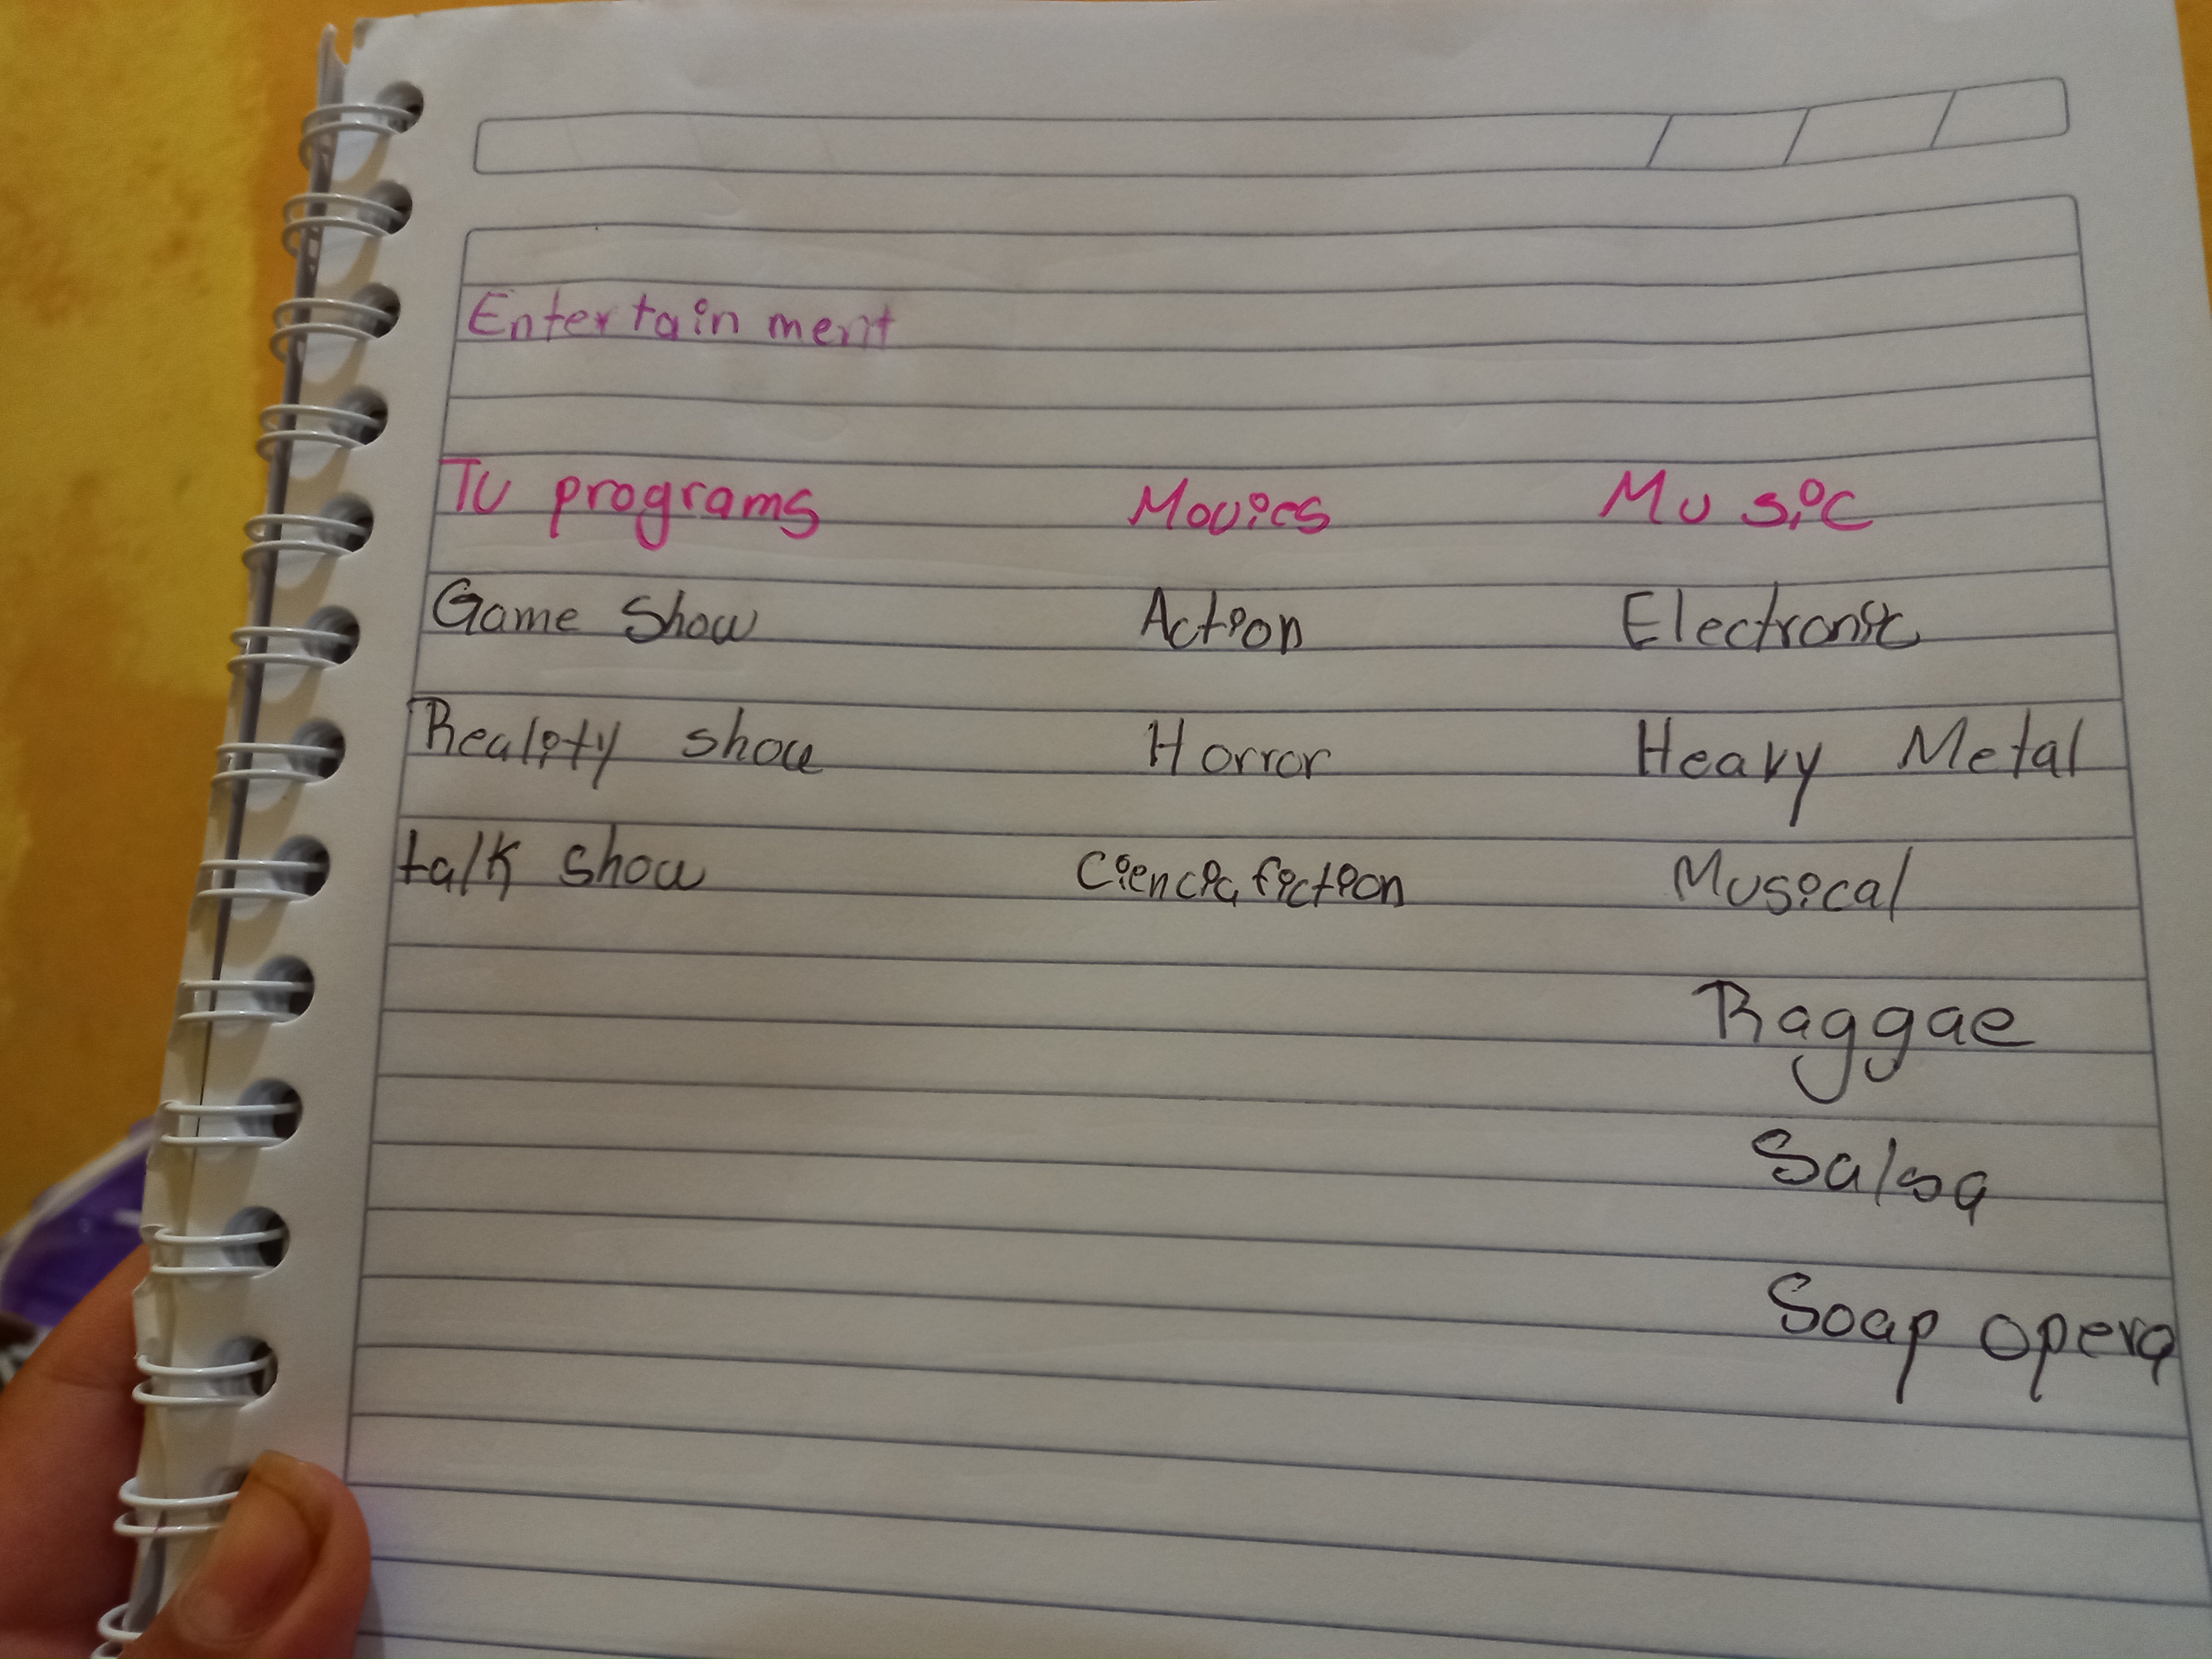 Entertainment
Tv programs Movies Music
Game Show Action Electronic
Reality show Horror Heavy Metal
talk show Ciencia fiction Musical
Raggae
Salsa
Soap opera